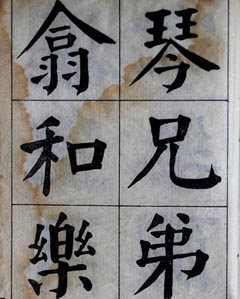 琴兄弟
翕和樂